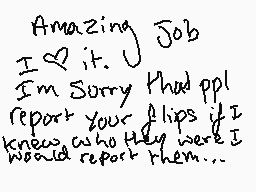 Amazing Job
I ♡ it.
I'm Sorry that ppl
report your flips if I
knew who they were I
would report them...